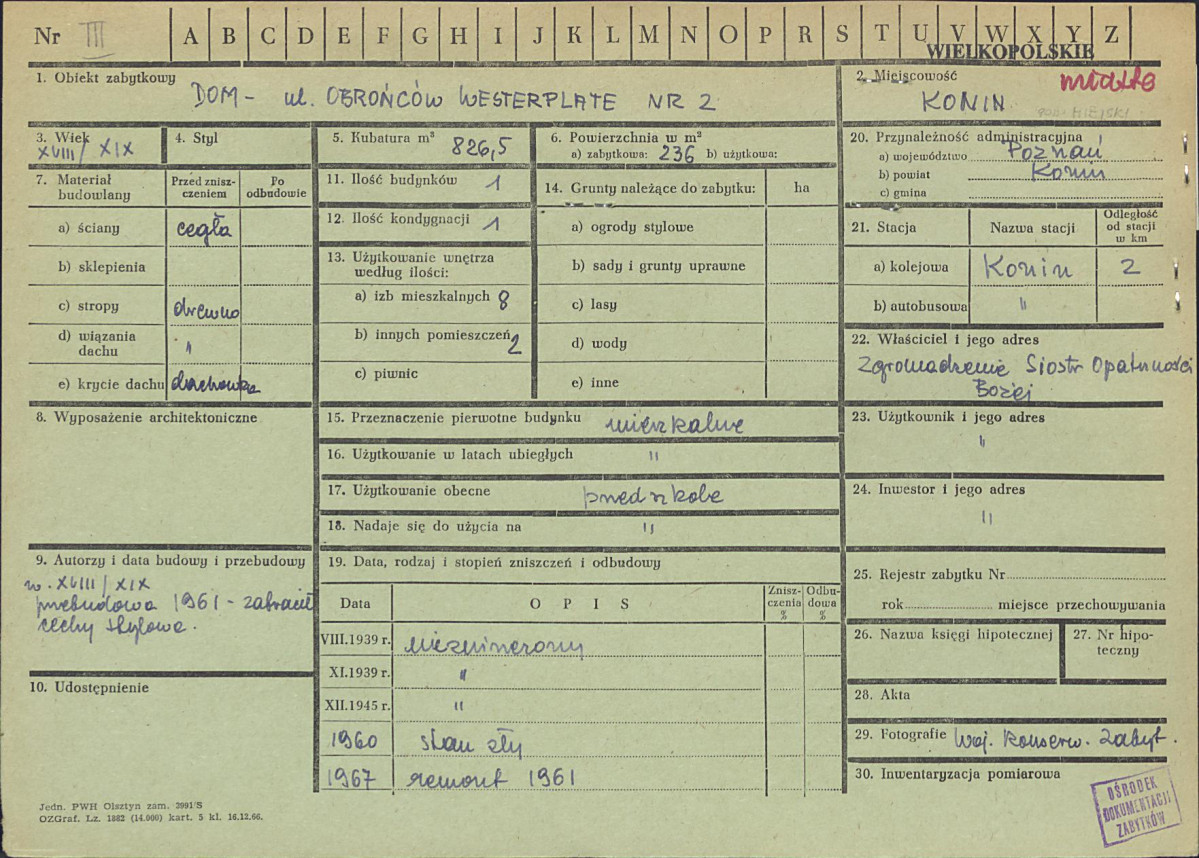 Nr III A B C D E F G H I J K L M N O P R S T U V W X Y Z
WIELKOPOLSKIE
1. Obiekt zabytkowy
DOM - ul. OBROŃCÓW WESTERPLATE NR 2
2. Miejscowość
miasto
KONIN
3. Wiek
XVIII/XIX
4. Styl
5. Kubatura m³ 826,5
6. Powierzchnia w m²
a) zabytkowa: 236 b) użytkowa:
7. Materiał budowlany
Przed zniszczeniem
Po odbudowie
a) ściany cegła
b) sklepienia
c) stropy drewno
d) wiązania dachu "
e) krycie dachu dachówka
8. Wyposażenie architektoniczne
9. Autorzy i data budowy i przebudowy
w. XVIII/XIX
przebudowa 1961 - zatracił
cechy stylowe.
10. Udostępnienie
11. Ilość budynków 1
12. Ilość kondygnacji 1
13. Użytkowanie wnętrza
według ilości:
a) izb mieszkalnych 8
b) innych pomieszczeń 2
c) piwnic
14. Grunty należące do zabytku: ha
a) ogrody stylowe
b) sady i grunty uprawne
c) lasy
d) wody
e) inne
15. Przeznaczenie pierwotne budynku mieszkalne
16. Użytkowanie w latach ubiegłych "
17. Użytkowanie obecne przedszkole
18. Nadaje się do użycia na "
19. Data, rodzaj i stopień zniszczeń i odbudowy
Data OPIS Zniszczenia % Odbudowa %
VIII.1939 r. niezniszczony
XI.1939 r. "
XII.1945 r. "
1960 stan zły
1967 remont 1961
20. Przynależność administracyjna
a) województwo Poznań
b) powiat Konin
c) gmina
21. Stacja Nazwa stacji Odległość od stacji w km
a) kolejowa Konin 2
b) autobusowa "
22. Właściciel i jego adres
Zgromadzenie Sióstr Opatrzności
Bożej
23. Użytkownik i jego adres
"
24. Inwestor i jego adres
"
25. Rejestr zabytku Nr
rok miejsce przechowywania
26. Nazwa księgi hipotecznej
27. Nr hipoteczny
28. Akta
29. Fotografie Woj. Konserw. Zabyt.
30. Inwentaryzacja pomiarowa
OŚRODEK
DOKUMENTACJI
ZABYTKÓW
Jedn. PWH Olsztyn zam. 3991/S
OZGraf. Lz. 1882 (14.000) kart. 5 kl. 16.12.66.